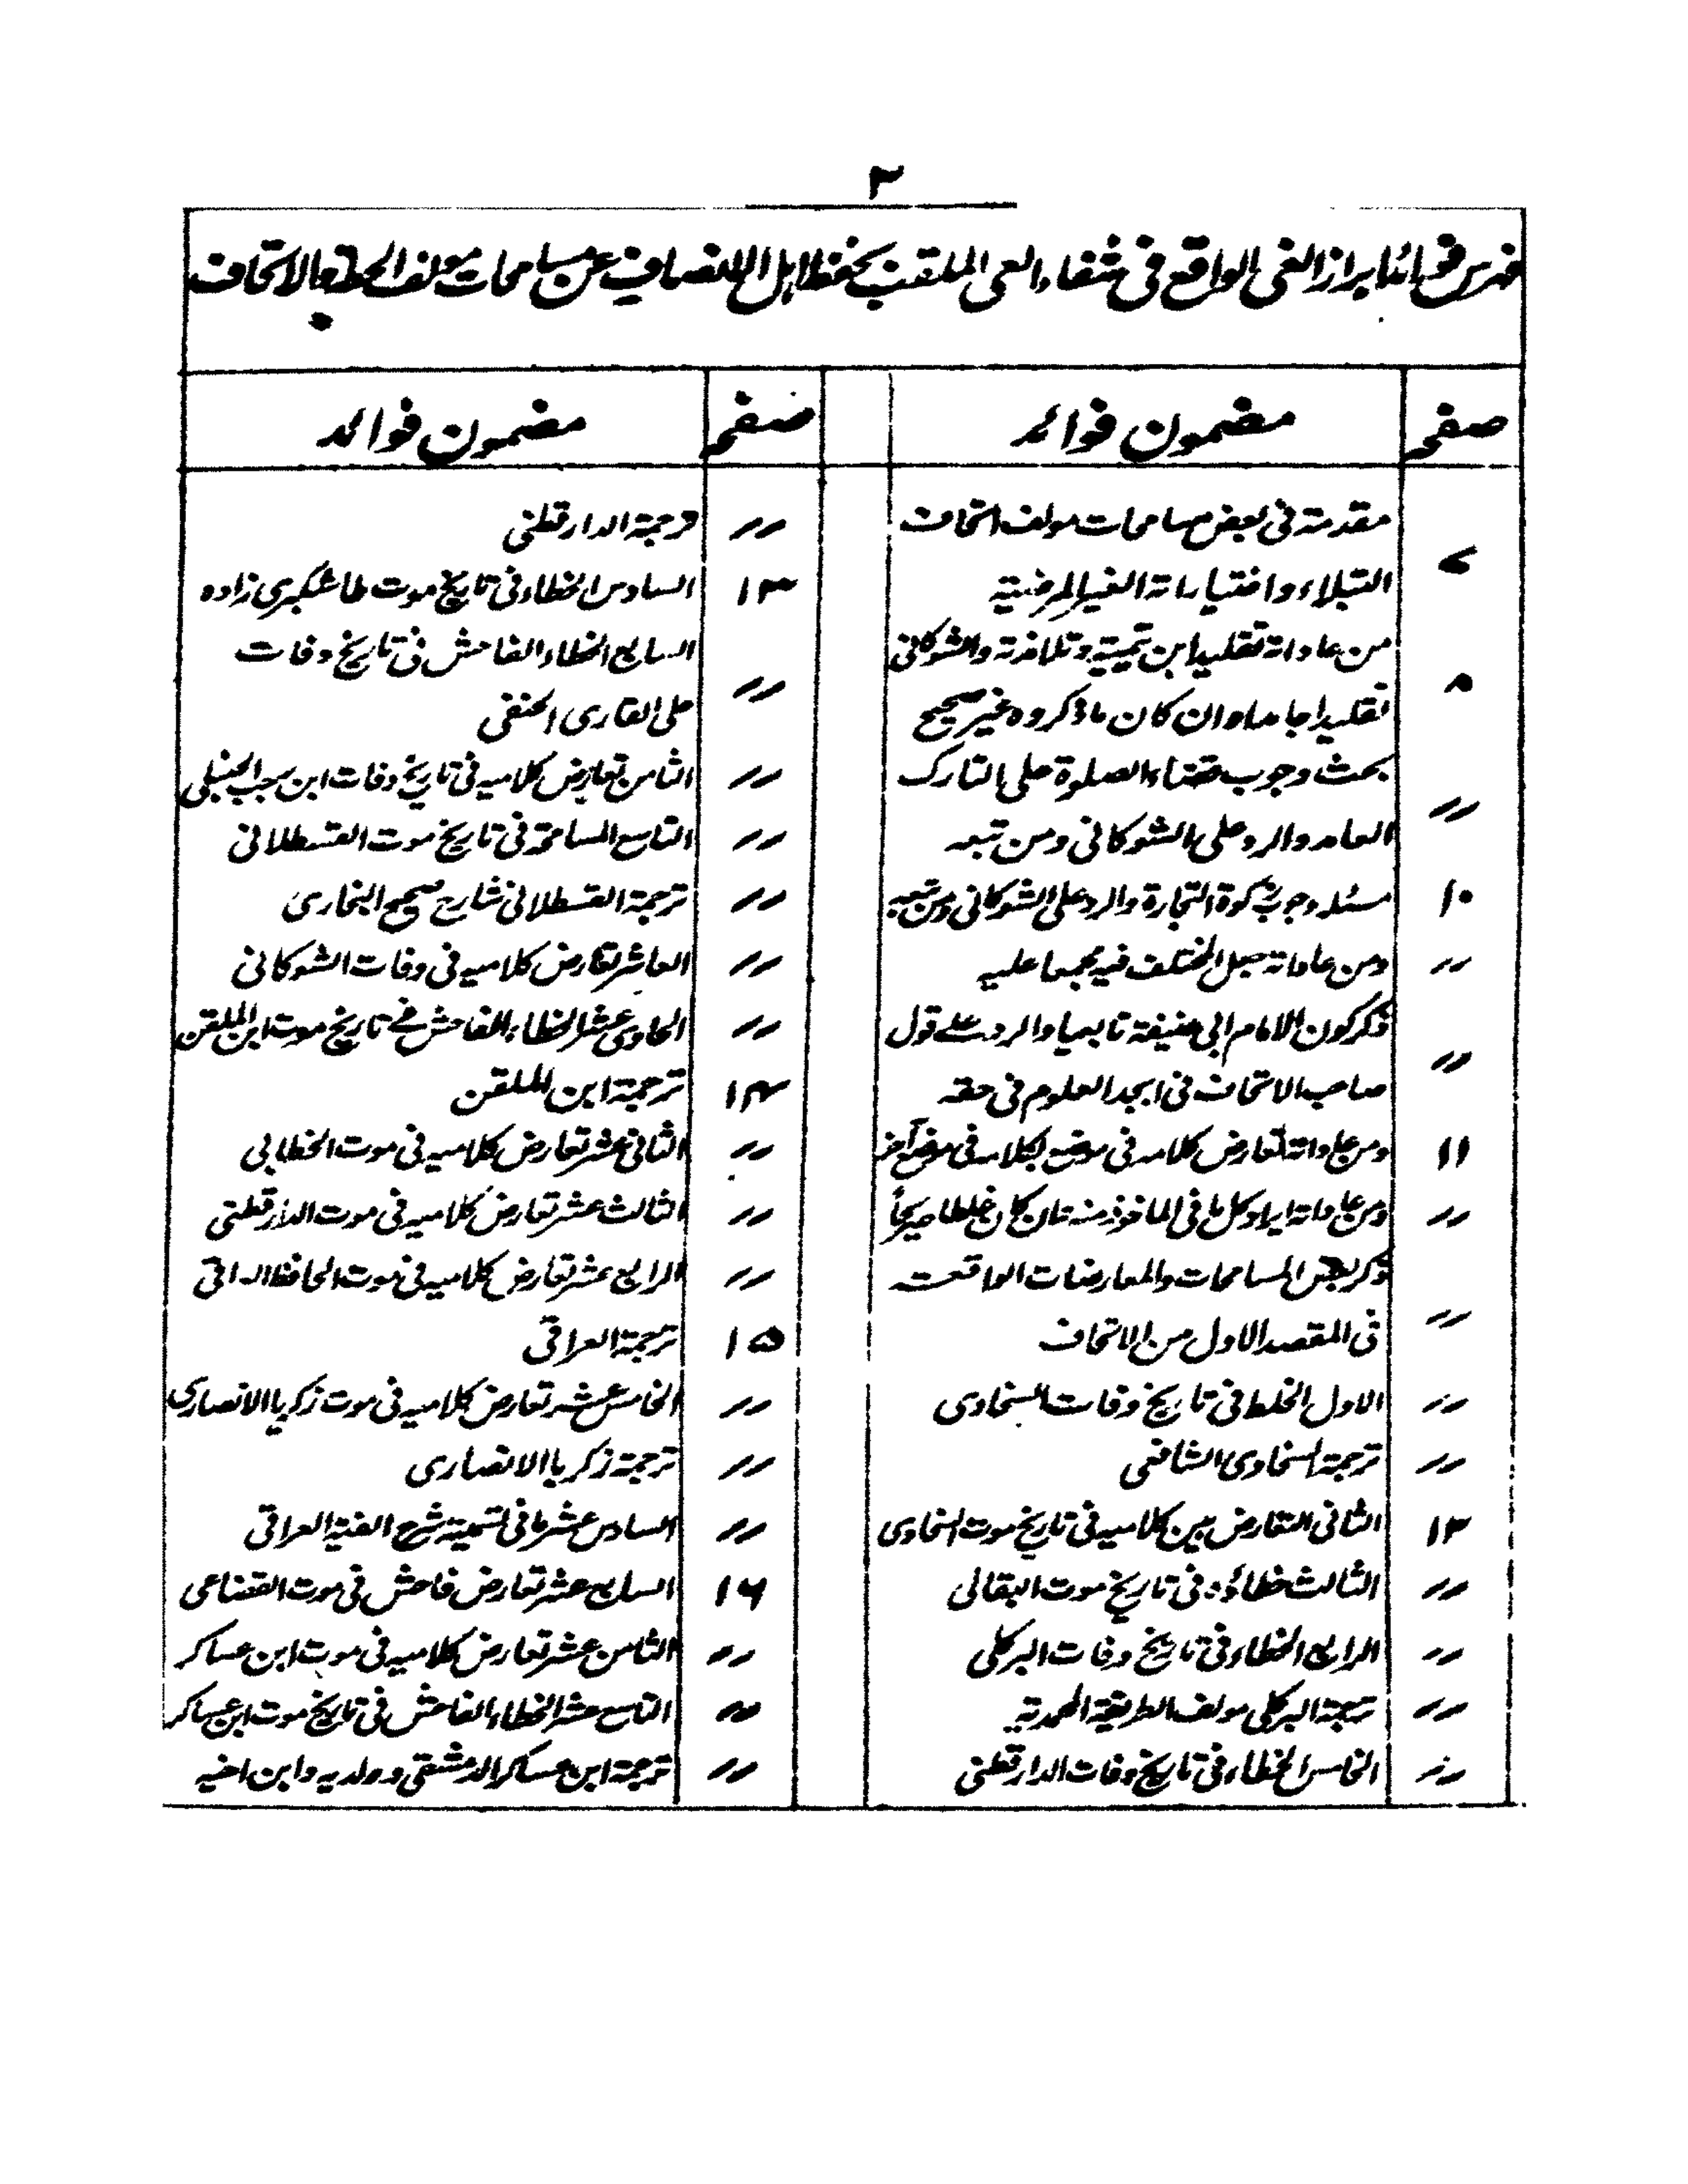 ٣
فهرس فوائد ابراز الغی الواقع فی شفاء العی الملقب بحفظ اہل الانصاف عن مسامحات مؤلف الحطة والاتحاف
صفحہ مضمون فوائد
مقدمة فی بعض مسامحات مولف اتحاف
٧
النبلاء واختیاراتة الغیر المرضیة
من عاداتة تقلید ابن تیمیة وتلامذتة والشوکانی
٨
تقلیدا جامدا وان کان ماذکروہ غیر صحیح
بحث وجوب قضاء الصلوة علی التارک
〃
العامد والرد علی الشوکانی ومن تبعہ
١٠ مسئلہ وجوب زکوة التجارة والرد علی الشوکانی ومن تبعہ
〃 ومن عاداتة جعل المختلف فیہ مجمعا علیہ
ذکر کون الامام ابی حنیفة تابعیا والرد علے قول
〃
صاحب الاتحاف فی ابجد العلوم فی حقہ
١١ ومن عاداتة تعارض کلامہ فی موضع لکلامہ فی موضع آخر
〃 ومن عاداتة ایراد کل ما فی الماخوذ منہ وان کان غلطا صریحاً
ذکر بعض المسامحات والمعارضات الواقعة
〃
فی المقصد الاول من الاتحاف
〃 الاول الخلط فی تاریخ وفات السخاوی
〃 ترجمة السخاوی الشافعی
١٢ الثانی التعارض بین کلامیہ فی تاریخ موت السخاوی
〃 الثالث خطاؤہ فی تاریخ موت البقالی
〃 الرابع الخطاء فی تاریخ وفات البرکلی
〃 ترجمة البرکلی مولف الطریقة المحمدیة
〃 الخامس الخطاء فی تاریخ وفات الدارقطنی
صفحہ مضمون فوائد
〃 ترجمة الدارقطنی
١٣ السادس الخطاء فی تاریخ موت طاشکبری زادہ
السابع الخطاء الفاحش فی تاریخ وفات
〃
علی القاری الحنفی
〃 الثامن تعارض کلامیہ فی تاریخ وفات ابن رجب الحنبلی
〃 التاسع المسامحة فی تاریخ موت القسطلانی
〃 ترجمة القسطلانی شارح صحیح البخاری
〃 العاشر تعارض کلامیہ فی وفات الشوکانی
〃 الحادی عشر الخطاء الفاحش فے تاریخ موت ابن الملقن
١٤ ترجمة ابن الملقن
〃 الثانی عشر تعارض کلامیہ فی موت الخطابی
〃 الثالث عشر تعارض کلامیہ فی موت الدارقطنی
〃 الرابع عشر تعارض کلامیہ فی موت الحافظ العراقی
١٥ ترجمة العراقی
〃 الخامس عشر تعارض کلامیہ فی موت زکریا الانصاری
〃 ترجمة زکریا الانصاری
〃 السادس عشر ما فی تسمیة شرح الفیة العراقی
١٦ السابع عشر تعارض فاحش فی موت القضاعی
〃 الثامن عشر تعارض کلامیہ فی موت ابن عساکر
〃 التاسع عشر الخطاء الفاحش فی تاریخ موت ابن عساکر
〃 ترجمة ابن عساکر الدمشقی وولدیہ وابن اخیہ